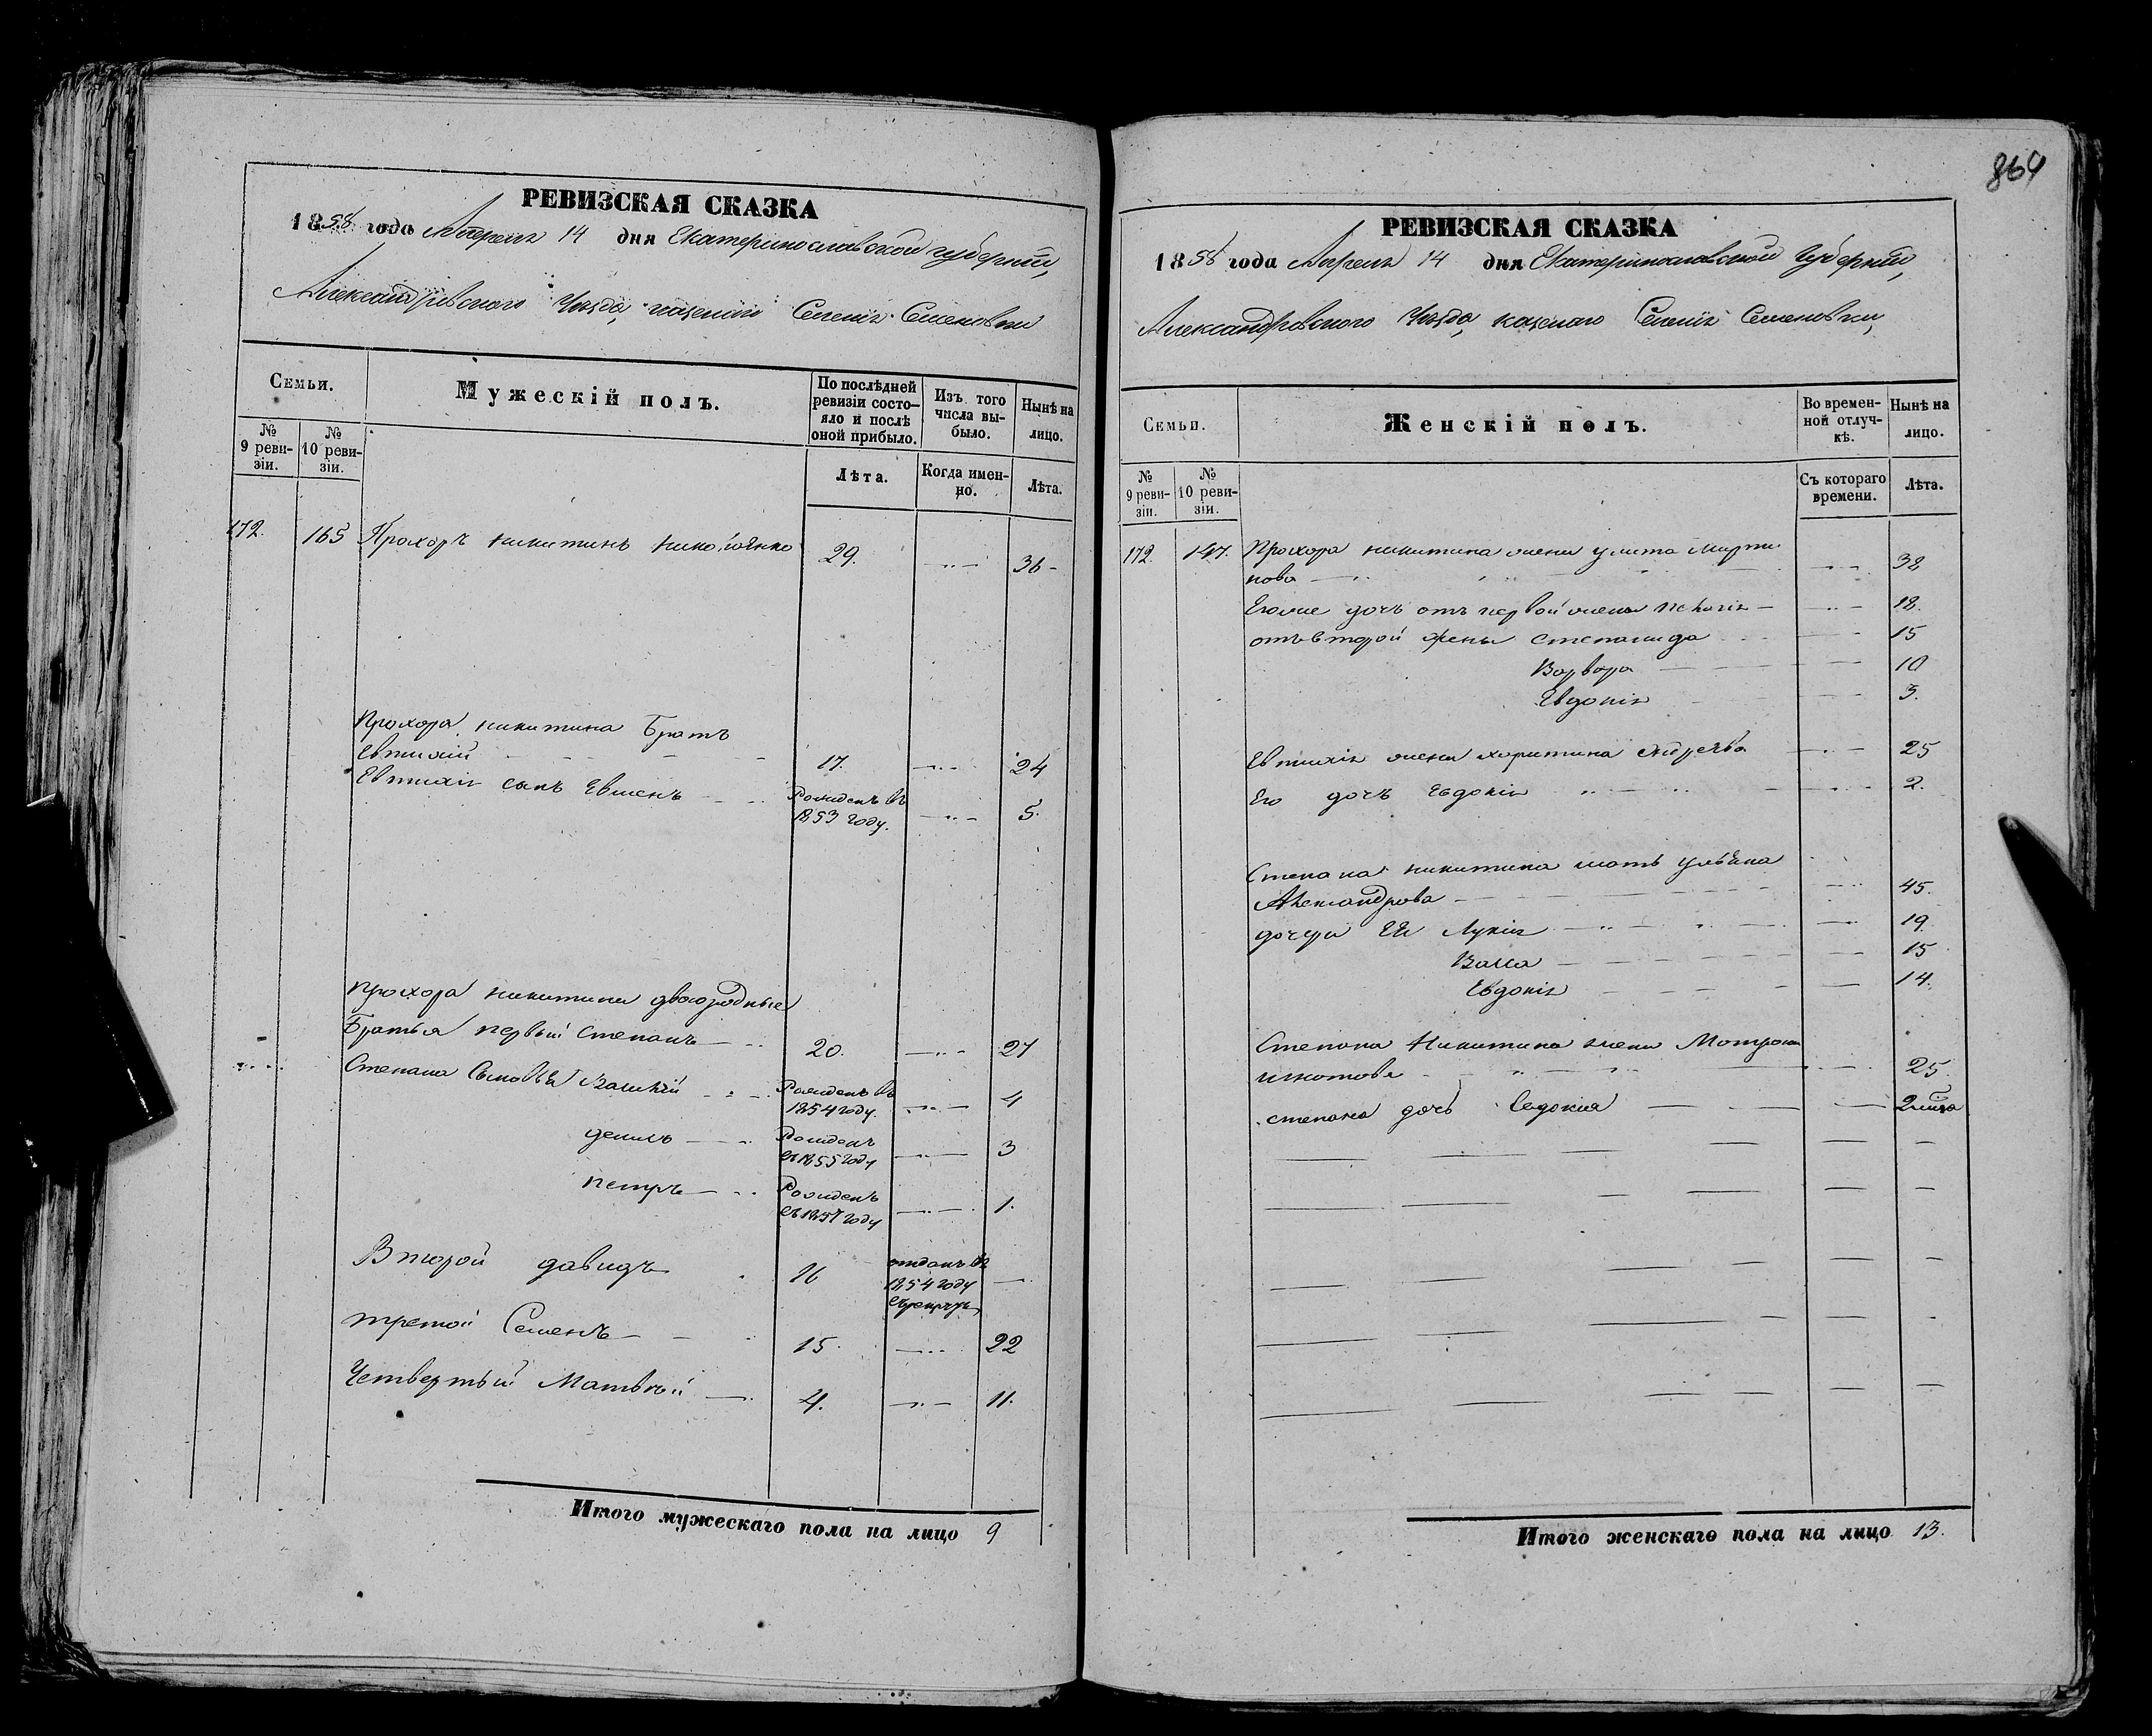 864
РЕВИЗСКАЯ СКАЗКА
1858 года Апреля 14 дня Екатеринославской губерніи,
Александровского Уезда, казенного Селенія Семеновки
Семьи.
Мужескій полъ.
По послѣдней ревизіи состояло и послѣ оной прибыло.
Изъ того числа выбыло.
Нынѣ на лицо.
№ 9 ревизіи.
№ 10 ревизіи.
Лѣта.
Когда именно.
Лѣта.
172. 165 Прохоръ никитинъ 29. 36
Прохора никитина Братъ
Евтихій 17. 24
Евтихія сынъ Евменъ Рожденъ въ 1853 году. 5.
Прохора никитина двоюродные
Братья первый Степанъ 20. 27
Степана Сыновья Василій Рожденъ въ 1854 году. 4
данилъ Рожденъ въ 1855 году 3
петръ Рожденъ въ 1857 году 1.
Второй давидъ 16 отданъ въ 1854 году въ рекруты
третой Семенъ 15. 22
Четвертый Матвей 4. 11.
Итого мужескаго пола на лицо 9
РЕВИЗСКАЯ СКАЗКА
1858 года Апреля 14 дня Екатеринославской Губерніи,
Александровского Уезда, казенаго Селенія Семеновки,
Семьи.
Женскій полъ.
Во временной отлучкѣ.
Нынѣ на лицо.
№ 9 ревизіи.
№ 10 ревизіи.
Съ котораго времени.
Лѣта.
172. Прохора никитина жена улита Марти
нова 32
Еюже дочь отъ первой жены 18.
отъ второй жены степанида 15
Варвара 10
Евдокія 3.
Евтихія жена харитина Андреева 25
Его дочь Евдокія 2.
Степана никитина мать ульяна
Александрова 45.
дочери Ея Лукія 19
Васса 15
Евдокія 14.
Степана Никитина жена Матрона
25.
степана дочь Евдокия 2
Итого женскаго пола на лицо 13.